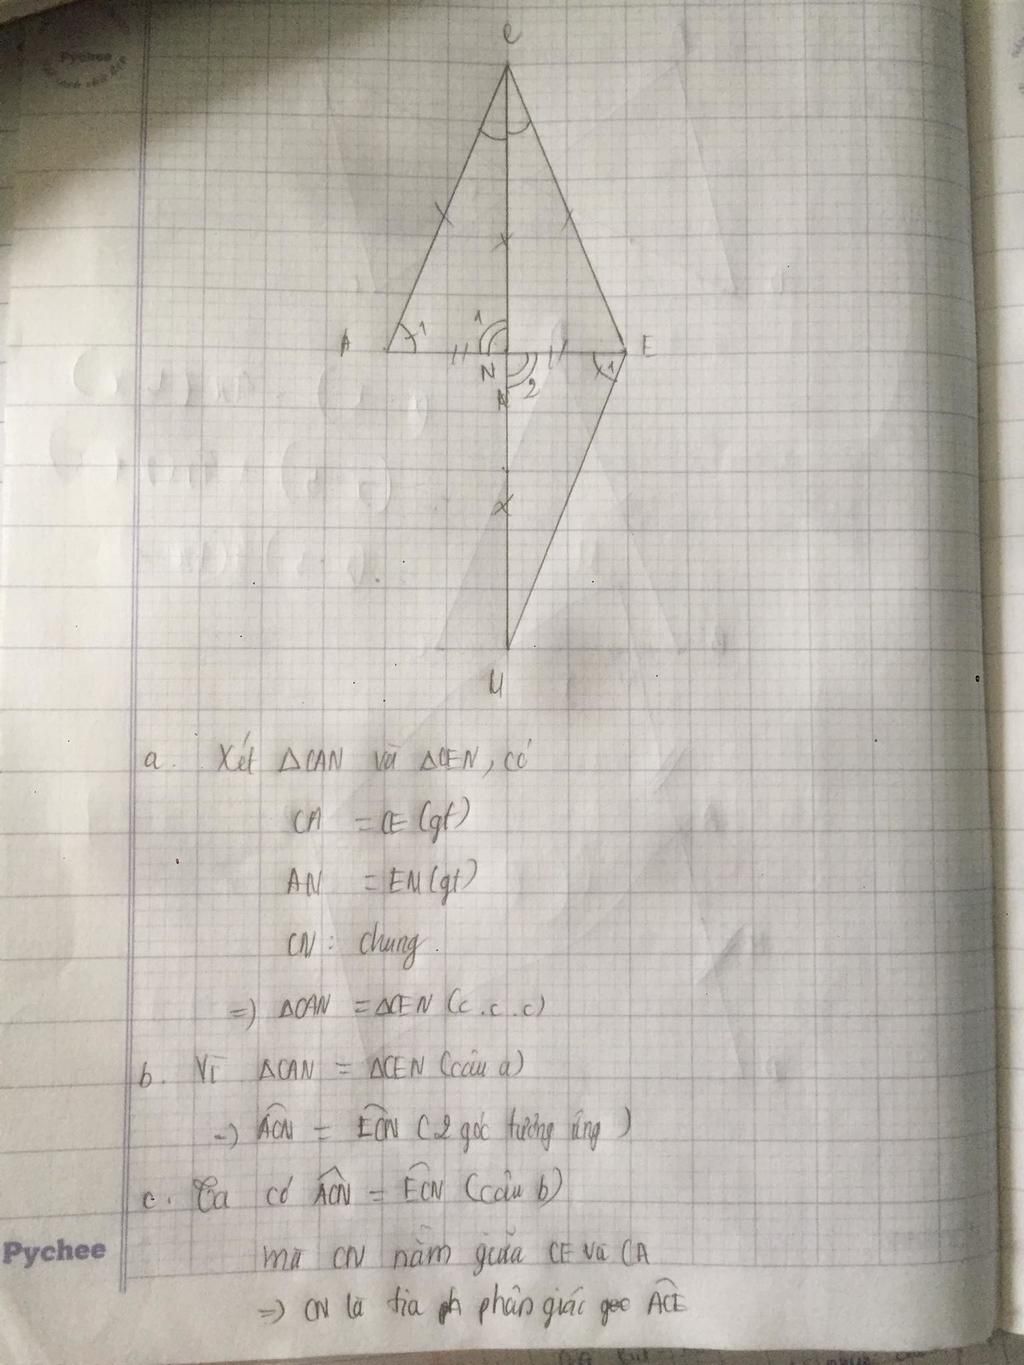 Pychee
C
A
1
1
N
2
1
E
U
a. Xét ΔCAN và ΔCEN, có
CA = CE (gt)
AN = EN (gt)
CN : chung.
=) ΔCAN = ΔCEN (c.c.c)
b. Vì ΔCAN = ΔCEN (câu a)
=) ACN = ECN (2 góc tương ứng)
c. Ta có ACN = ECN (câu b)
mà CN nằm giữa CE và CA
Pychee
=) CN là tia ph phân giác goc ACE